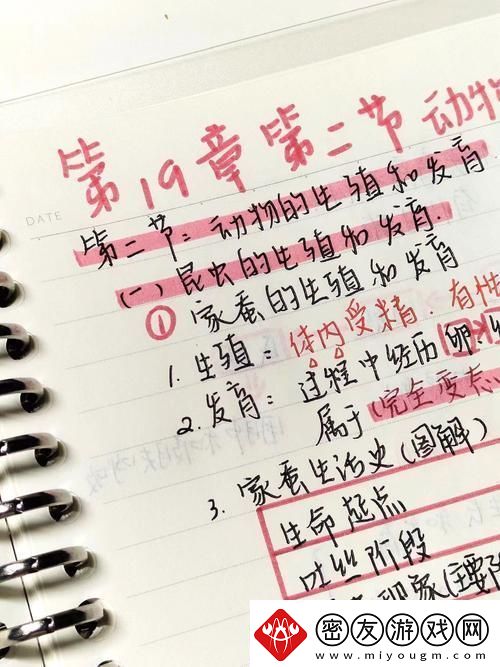 第19章第二节动物
DATE
第二节：动物的生殖和发育.
(一)昆虫的生殖和发育.
① 家蚕的生殖和发育
1. 生殖：体内受精. 有性
2. 发育：过程中经历卵.
属于(完全变态
3. 家蚕生活史(图解)
生命起点
吐丝阶段
密友游戏网
www.miyougm.com